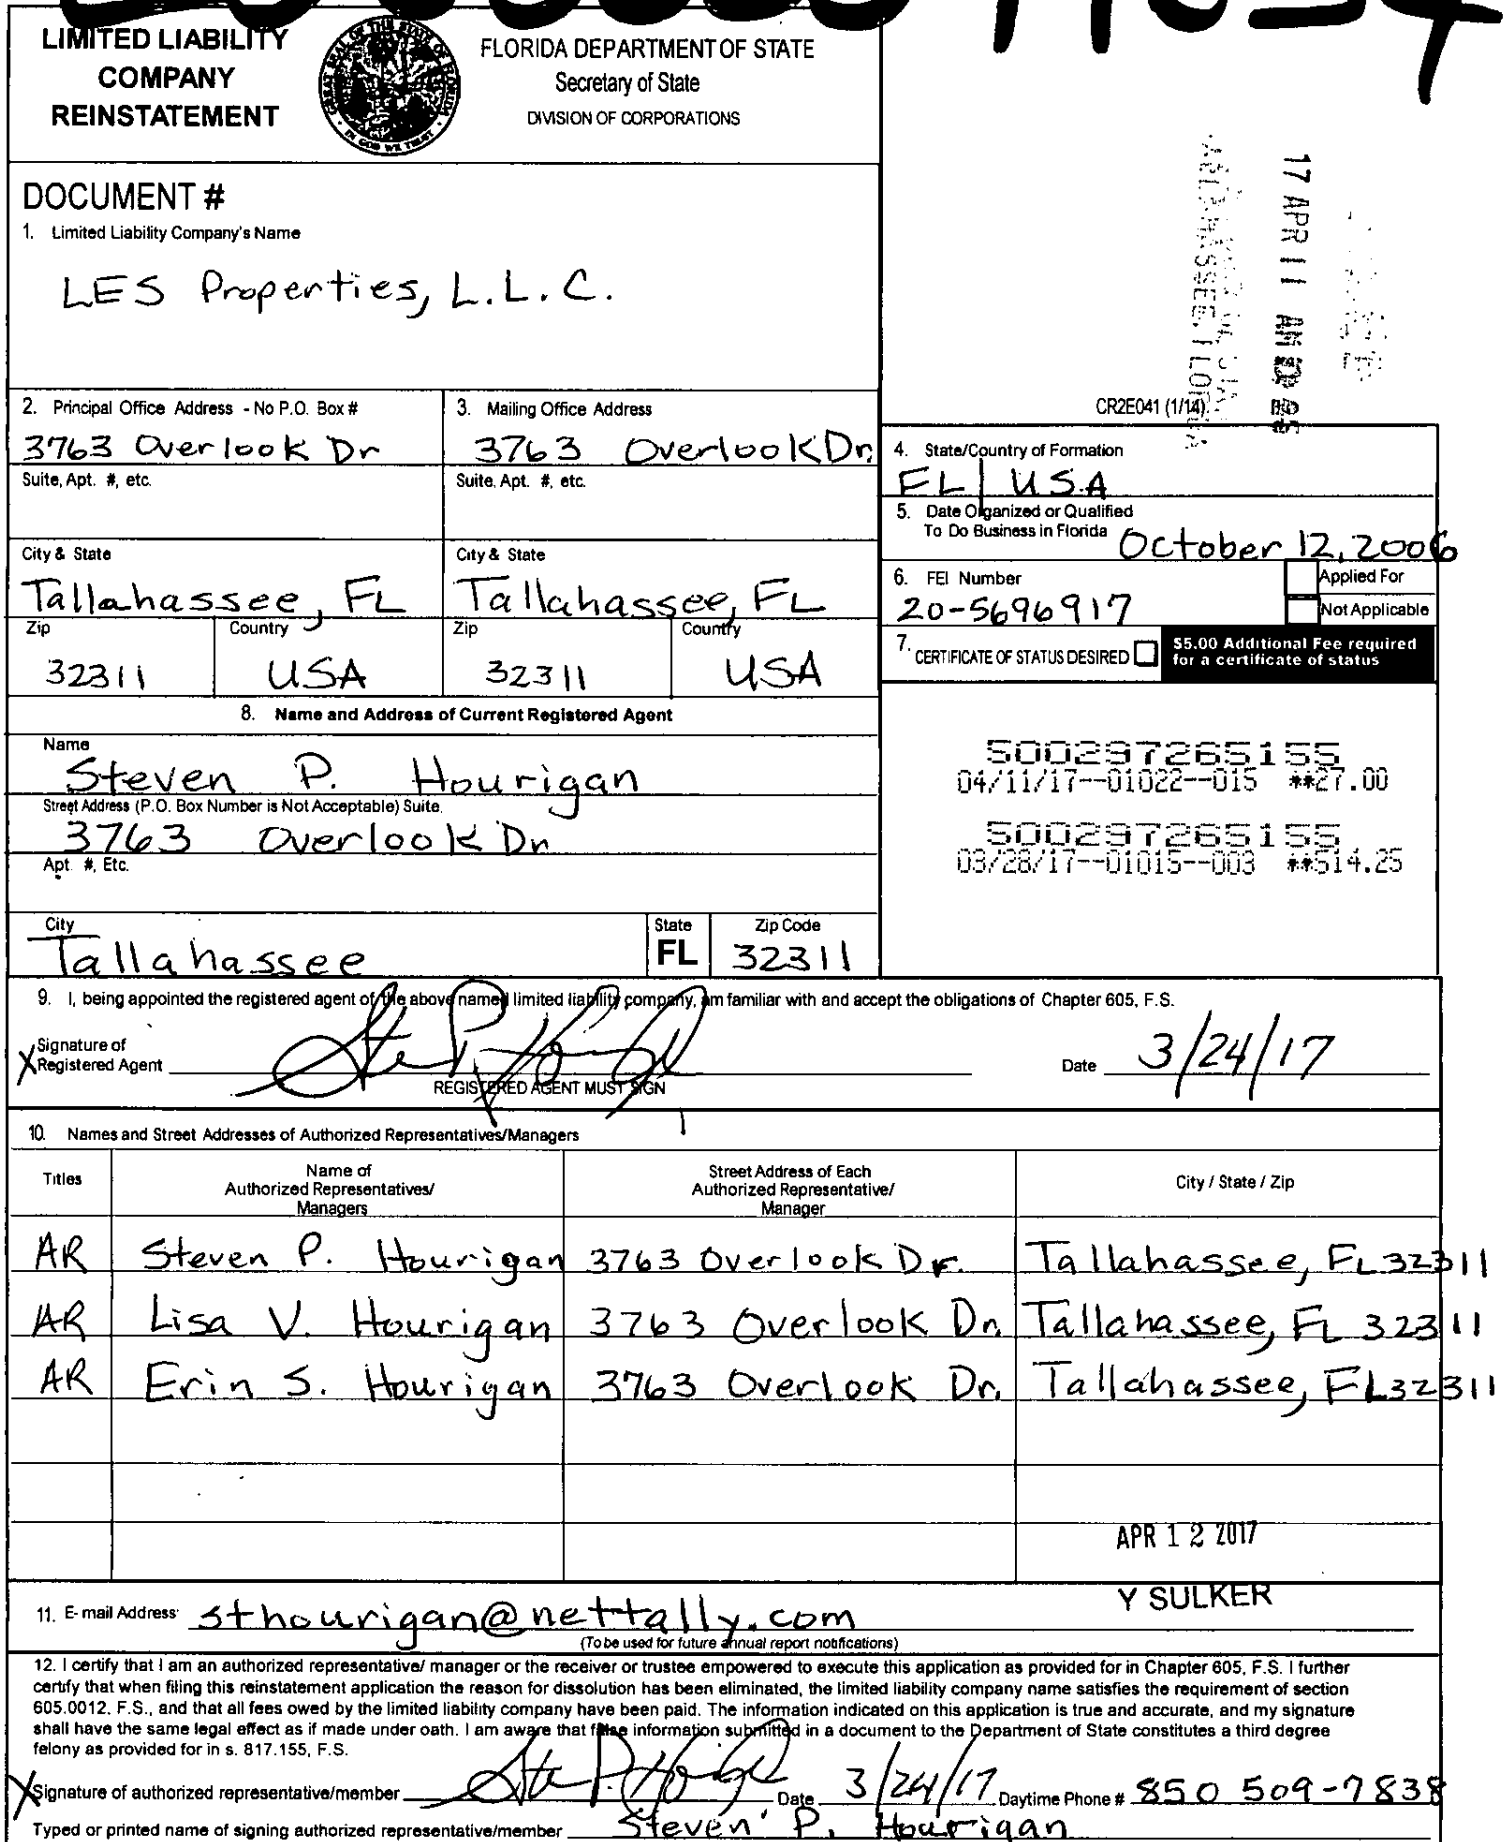 LIMITED LIABILITY
COMPANY
REINSTATEMENT
FLORIDA DEPARTMENT OF STATE
Secretary of State
DIVISION OF CORPORATIONS
DOCUMENT #
1. Limited Liability Company's Name
LES Properties, L.L.C.
17 APR 11 AM
CR2E041 (1/14)
2. Principal Office Address - No P.O. Box #
3763 Overlook Dr
3. Mailing Office Address
3763 Overlook Dr.
Suite, Apt. #, etc.
Suite, Apt. #, etc.
City & State
Tallahassee, FL
City & State
Tallahassee, FL
Zip
32311
Country
USA
Zip
32311
Country
USA
4. State/Country of Formation
FL / USA
5. Date Organized or Qualified
To Do Business in Florida
October 12, 2006
6. FEI Number
20-5696917
Applied For
Not Applicable
7. CERTIFICATE OF STATUS DESIRED
$5.00 Additional Fee required
for a certificate of status
8. Name and Address of Current Registered Agent
Name
Steven P. Hourigan
Street Address (P.O. Box Number is Not Acceptable) Suite,
3763 Overlook Dr
Apt. #, Etc.
City
Tallahassee
State
FL
Zip Code
32311
500297265155
04/11/17--01022--015 **27.00
500297265155
03/28/17--01015--003 **514.25
9. I, being appointed the registered agent of the above named limited liability company, am familiar with and accept the obligations of Chapter 605, F.S.
X Signature of
Registered Agent
REGISTERED AGENT MUST SIGN
Date 3/24/17
10. Names and Street Addresses of Authorized Representatives/Managers
Titles
Name of
Authorized Representatives/
Managers
Street Address of Each
Authorized Representative/
Manager
City / State / Zip
AR Steven P. Hourigan 3763 Overlook Dr. Tallahassee, FL 32311
AR Lisa V. Hourigan 3763 Overlook Dr. Tallahassee, FL 32311
AR Erin S. Hourigan 3763 Overlook Dr. Tallahassee, FL 32311
APR 12 2017
Y SULKER
11. E-mail Address: sthourigan@nettally.com
(To be used for future annual report notifications)
12. I certify that I am an authorized representative/ manager or the receiver or trustee empowered to execute this application as provided for in Chapter 605, F.S. I further
certify that when filing this reinstatement application the reason for dissolution has been eliminated, the limited liability company name satisfies the requirement of section
605.0012, F.S., and that all fees owed by the limited liability company have been paid. The information indicated on this application is true and accurate, and my signature
shall have the same legal effect as if made under oath. I am aware that false information submitted in a document to the Department of State constitutes a third degree
felony as provided for in s. 817.155, F.S.
X Signature of authorized representative/member
Date 3/24/17 Daytime Phone # 850 509-7838
Typed or printed name of signing authorized representative/member Steven P. Hourigan